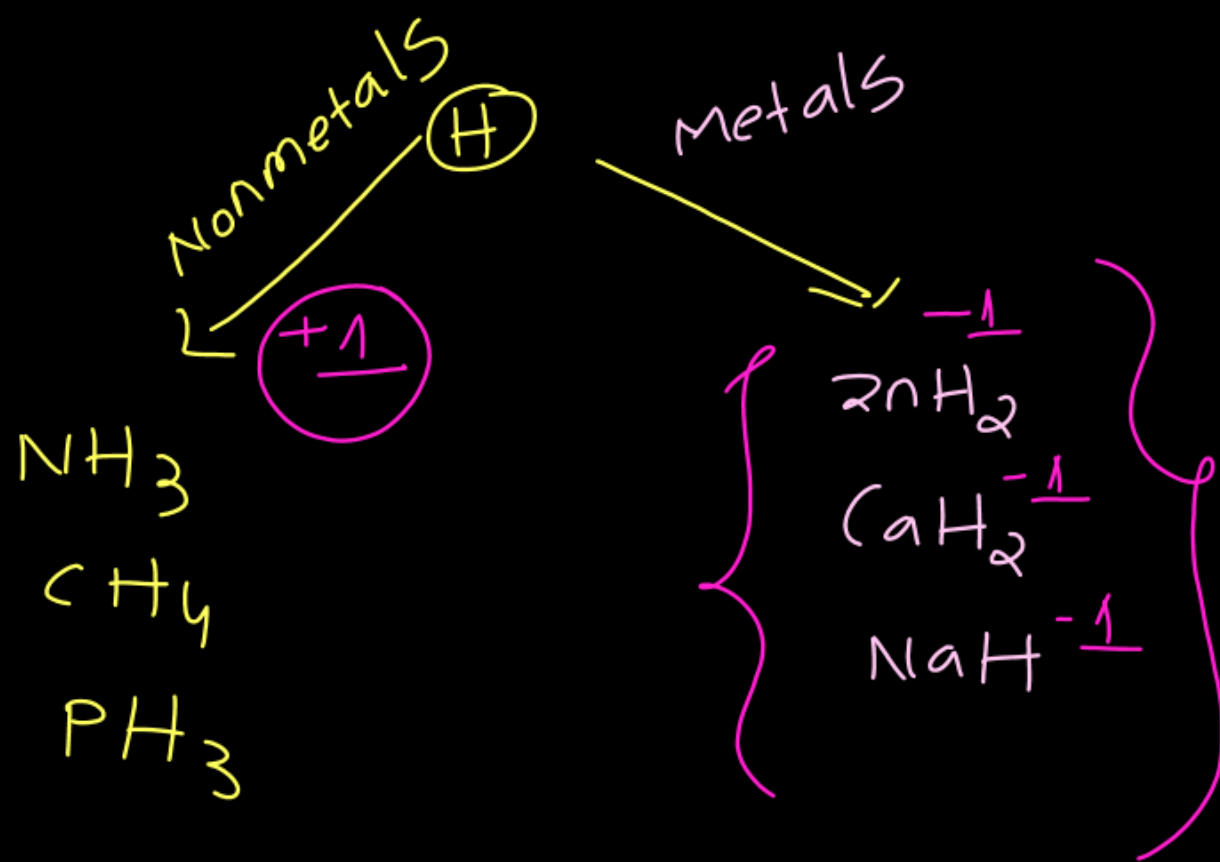 Nonmetals
H
Metals
+1
NH3
CH4
PH3
-1
ZnH2
CaH2 -1
NaH -1